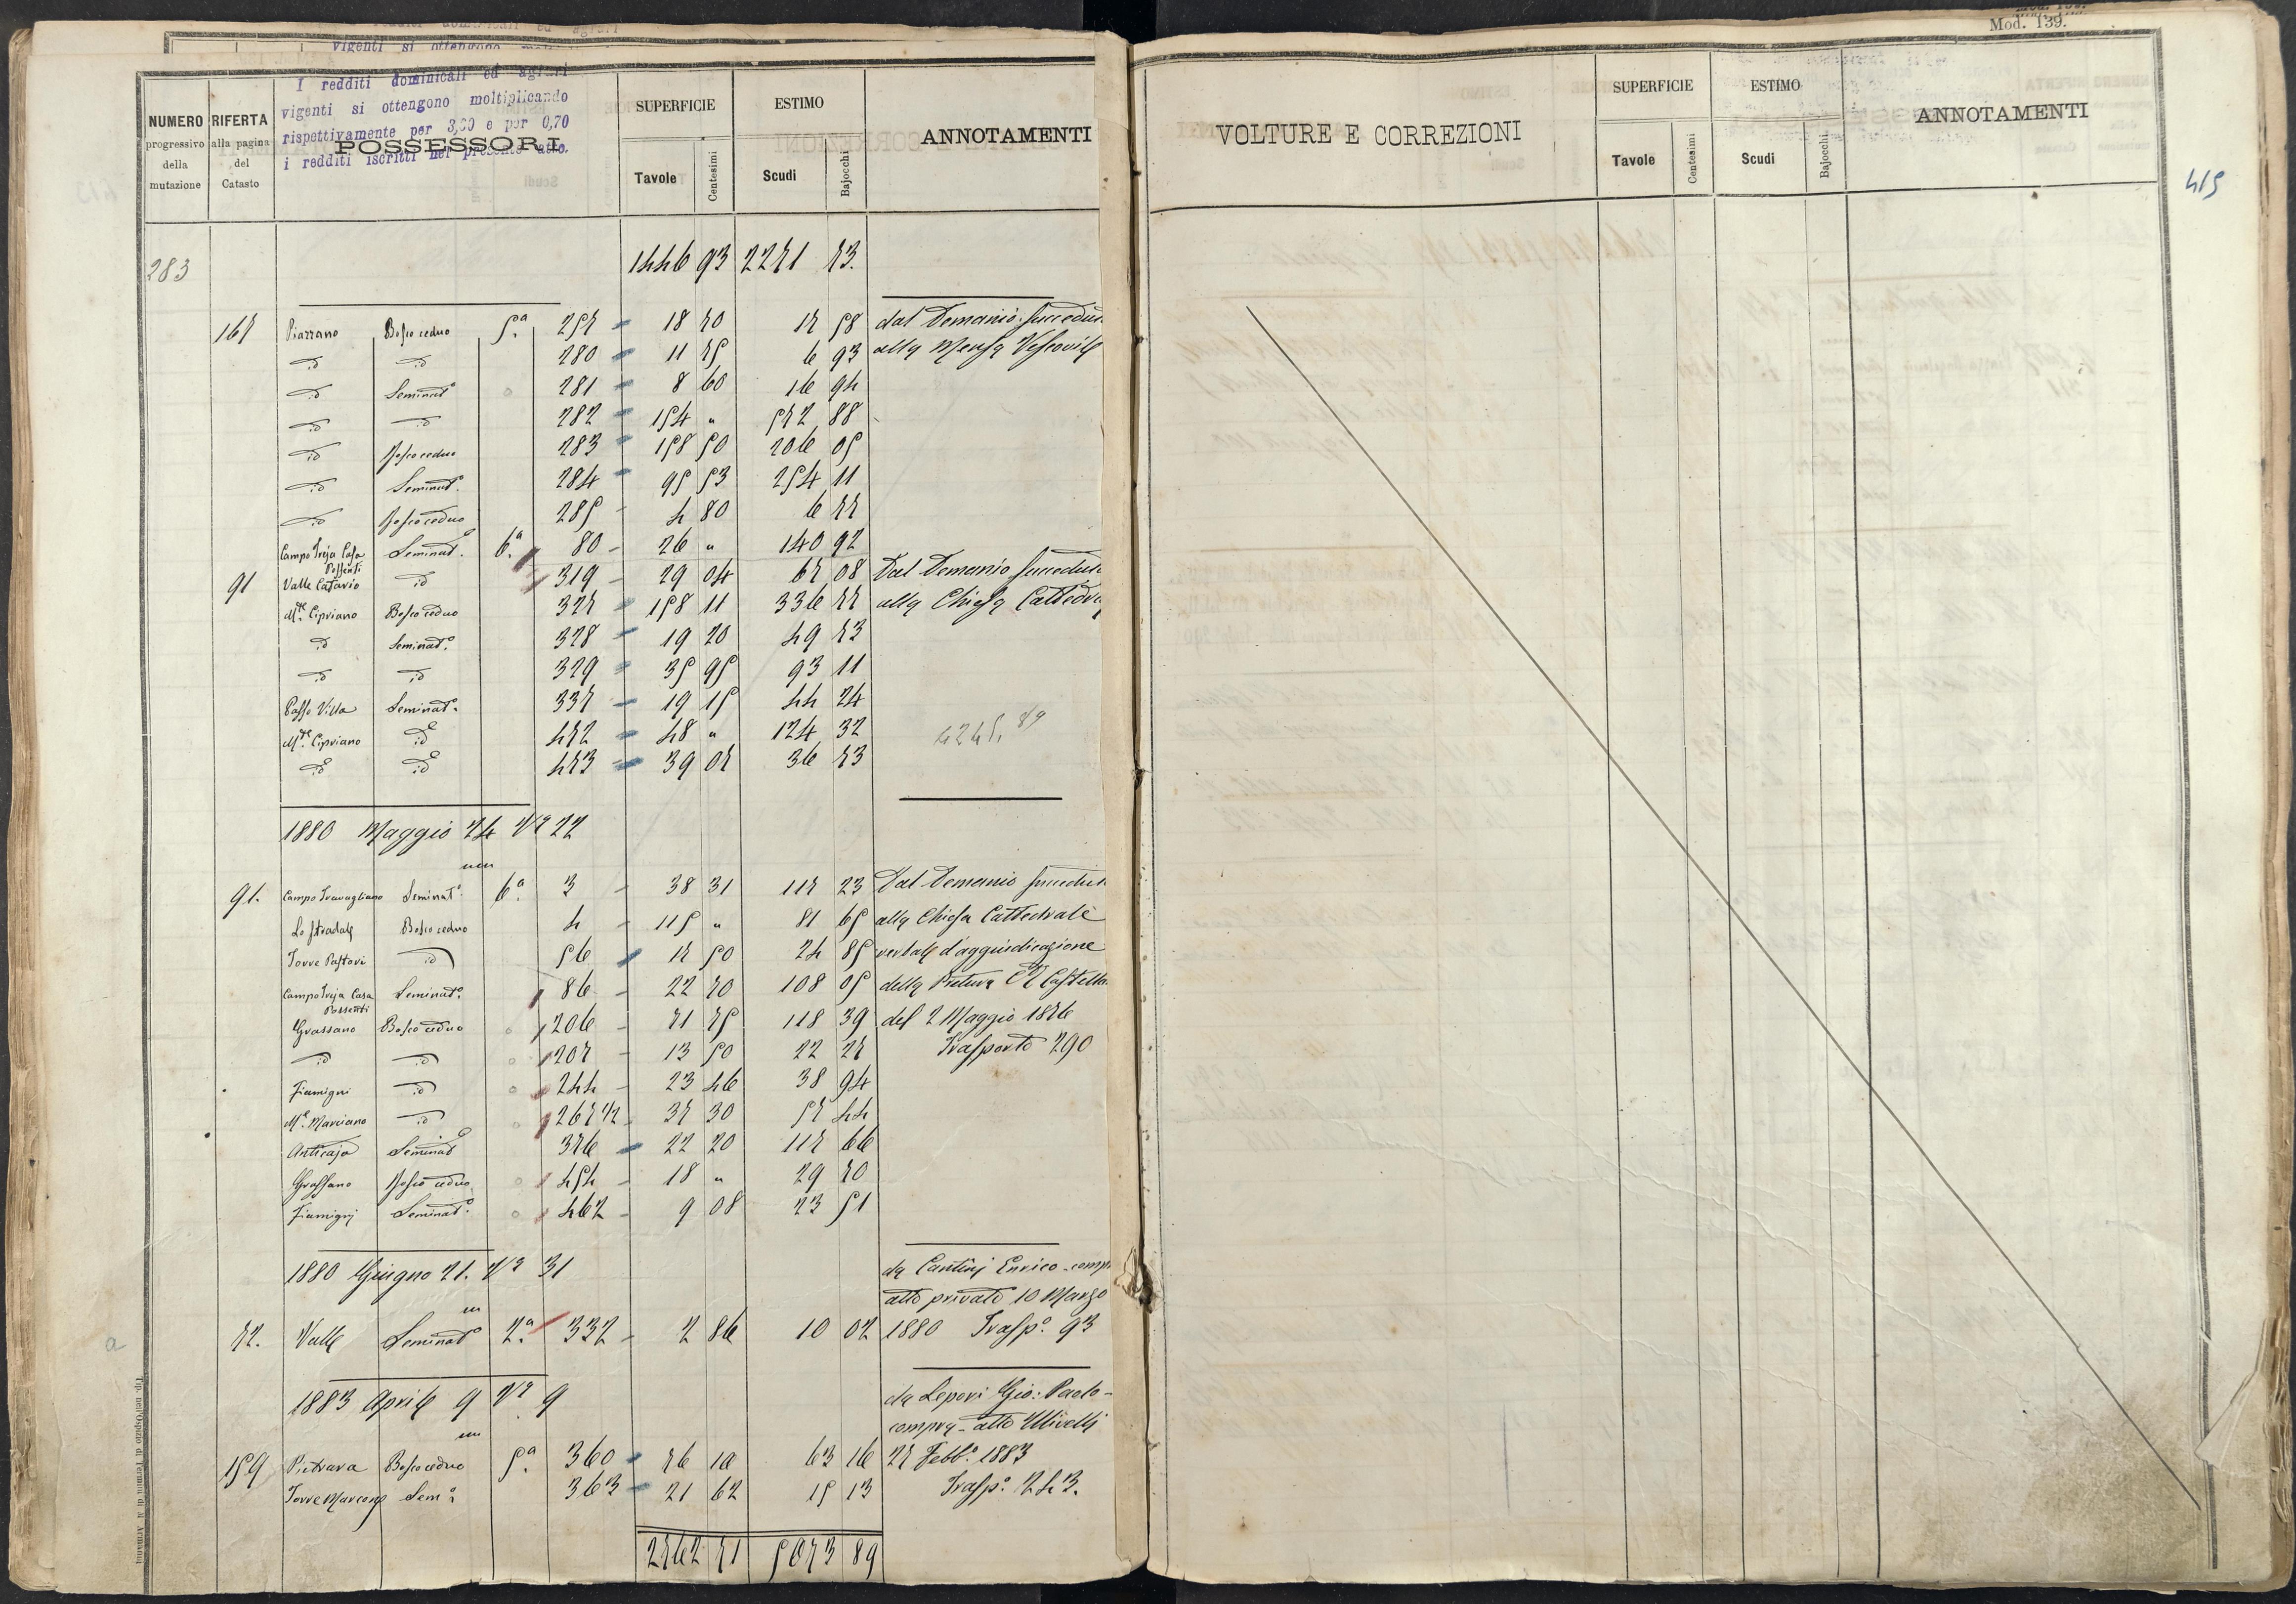 Mod. 139.
I redditi dominicali ed agrari
vigenti si ottengono moltiplicando
rispettivamente per 3,60 e per 0,70
i redditi iscritti nel presente atto.
NUMERO progressivo della mutazione
RIFERTA alla pagina del Catasto
POSSESSORI
SUPERFICIE Tavole Centesimi
ESTIMO Scudi Bajocchi
ANNOTAMENTI
283 1446 93 2271 73.
167 Piazzano Bosco ceduo 5.a 257 18 70 17 58 dal Demanio succedut
id id 280 11 75 6 93 alla Mensa Vescovile
id Seminato 281 8 60 16 94
id id 282 154 " 572 88
id Bosco ceduo 283 158 50 206 05
id Seminato 284 95 53 254 11
id Bosco ceduo 285 4 80 6 77
Campo Treja Casa Possenti Seminato 6.a 80 26 " 140 92
91 Valle Catavio id 319 29 04 67 08 Dal Demanio succedut
Mte Cipriano Bosco ceduo 327 158 11 336 77 alla Chiesa Cattedra
id Seminato 328 19 20 49 73
id id 329 35 95 93 11
Passo Villa Seminato 337 19 15 44 24
Mte Cipriano id 472 48 " 124 32 4245.89
id id 473 39 07 36 73
1880 Maggio 24 No 22
91. Campo Travagliano Seminato 6.a 3 38 31 117 23 Dal Demanio succedut
Lo Stradale Bosco ceduo 4 115 " 81 65 alla Chiesa Cattedrale
Torre Pastori id 56 17 50 24 85 verbale d'aggiudicazione
Campo Treja Casa Possenti Seminato 86 22 70 108 05 della Pretura Castello
Grassano Bosco ceduo 206 71 75 118 39 del 2 Maggio 1876
id id 207 13 50 22 27 Trasporto 290
Fiumigni id 244 23 46 38 94
Mte Marciano id 267 1/2 37 30 57 44
Anticaja Seminato 376 22 20 117 66
Grassano Bosco ceduo 454 18 " 29 70
Fiumigni Seminato 462 9 08 23 51
1880 Giugno 21. No 31 da Cantinj Enrico - comp
atto privato 10 Marzo
72. Valle Seminato 2.a 332 2 86 10 02 1880 Traspo. 93
1883 Aprile 9 No 9 da Lepori Gio: Paolo -
compra - atto Ulivelli
159 Pietrara Bosco ceduo 5.a 360 76 10 63 16 27 Febbo. 1883
Torre Marcone Sem.o 363 21 62 15 13 Traspo. 243.
2762 71 5073 89
VOLTURE E CORREZIONI
SUPERFICIE Tavole Centesimi
ESTIMO Scudi Bajocchi
ANNOTAMENTI
415